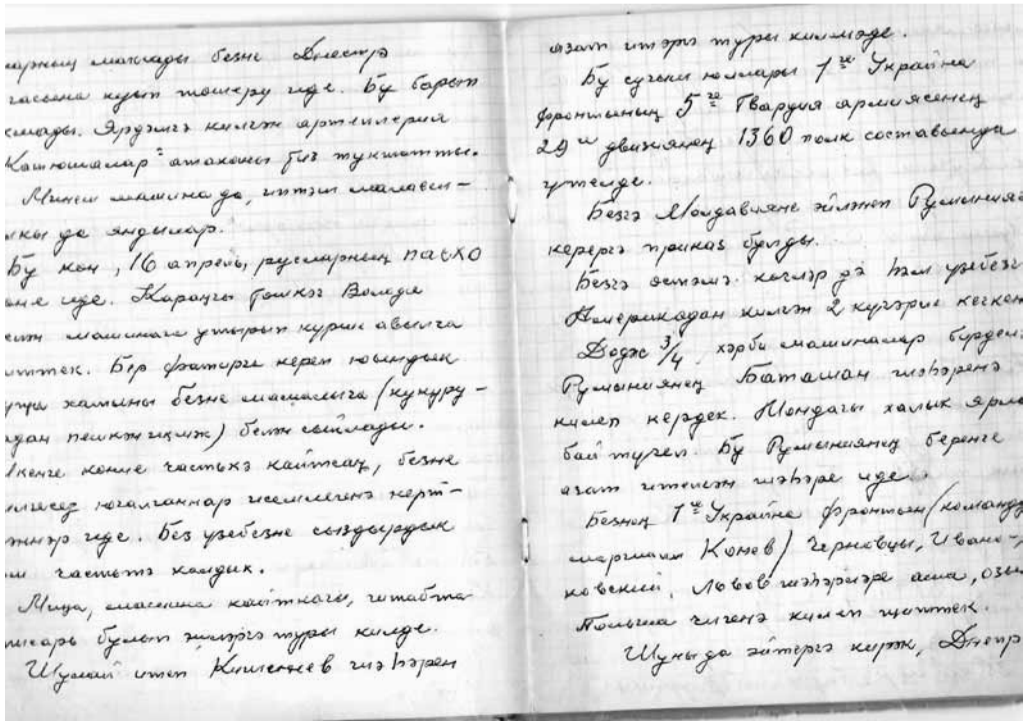 максады безне Днестр
куып төшерү иде. Бу барып
Ярдәмгә килгән артиллерия
"Катюшалар" атаканы тиз туктатты.
Минем машина да, иптәш малаен-
да яндылар.
Бу көн, 16 апрель, русларның пасха
иде. Караңгы төшкәч Володя
машинага утырып күрше авылга
киттек. Бер фатирга кереп юындык
хатыны безне мамалыга (кукуру-
пешкән икмәк) белән сыйлады.
Икенче көнне частька кайтсак, безне
югалганнар исемлегенә керт-
иде. Без үзебезне сыздырдык
частьта калдык.
Миңа, машина кайткачы, штабта
писарь булып эшләргә туры килде.
Шулай итеп Кишенев шәһәрен
азат итәргә туры килмәде.
Бу сугыш юллары 1 нче Украина
фронтының 5 нче Гвардия армиясенең
29 дивизиянең 1360 полк составында
үтелде.
Безгә Молдавияне әйләнеп Румыниягә
керергә приказ булды.
Безгә өстәмә көчләр дә һәм үзебезгә
Америкадан килгән 2 күчәрле кечкенә
Додж 3/4 хәрби машиналар бирделәр
Румыниянең Баташан шәһәренә
килеп кердек. Мондагы халык ярлы
бай түгел. Бу Румыниянең беренче
азат ителгән шәһәре иде.
Безнең 1 нче Украина фронты (команд
маршалы Конев) Черновцы, Ивано-
ковский, Львов шәһәрләре аша, озы
Польша чигенә килеп җиттек.
Шуны да әйтергә кирәк, Днепр